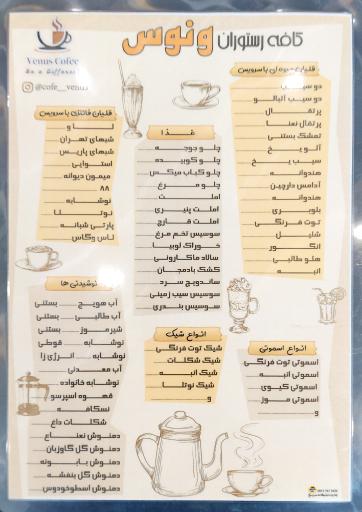 کافه رستوران ونوس
Venus Cofee
Be a Different
@cofe__venus
قلیان میوه ای با سرویس
دو سیب
دو سیب آلبالو
پرتقال
پرتقال نعنا
تمشک بستنی
آلو یخ
سیب یخ
هندوانه
آدامس دارچین
هندوانه
بلوبری
توت فرنگی
شلیل
انگور
هلو طالبی
انبه
غذا
چلو جوجه
چلو کوبیده
چلو کباب میکس
چلو مرغ
املت
املت پنیری
املت قارچ
سوسیس تخم مرغ
خوراک لوبیا
سالاد ماکارونی
کشک بادمجان
ساندویچ سرد
سوسیس سیب زمینی
سوسیس بندری
قلیان فانتزی با سرویس
لاو
شبهای تهران
شبهای پاریس
استوایی
میمون دیوانه
۸۸
نوشابه
نوتلا
پارتی شبانه
لاس وگاس
نوشیدنی ها
آب هویج بستنی
آب طالبی بستنی
شیر موز بستنی
نوشابه قوطی
نوشابه انرژی زا
آب معدنی
نوشابه خانواده
قهوه اسپرسو
نسکافه
شکلات داغ
دمنوش نعناع
دمنوش گل گاوزبان
دمنوش بابونه
دمنوش گل بنفشه
دمنوش اسطوخودوس
انواع شیک
شیک توت فرنگی
شیک شکلات
شیک انبه
شیک نوتلا
و
انواع اسموتی
اسموتی توت فرنگی
اسموتی انبه
اسموتی کیوی
اسموتی موز
و